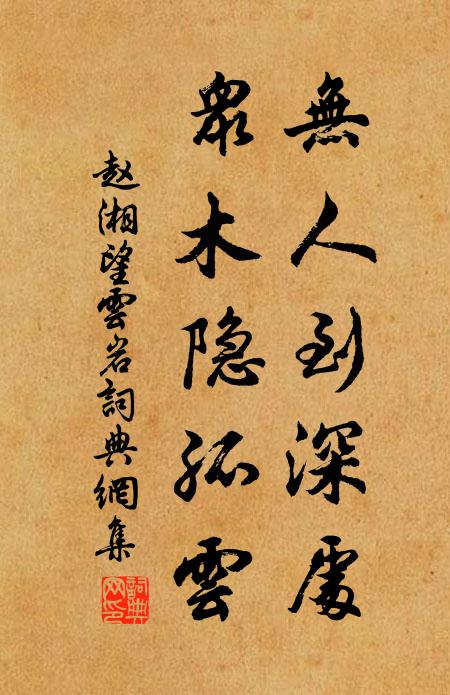 無人到深處
眾木隐孤雲
赵湘望雲岩詞典網集
詞典
网印